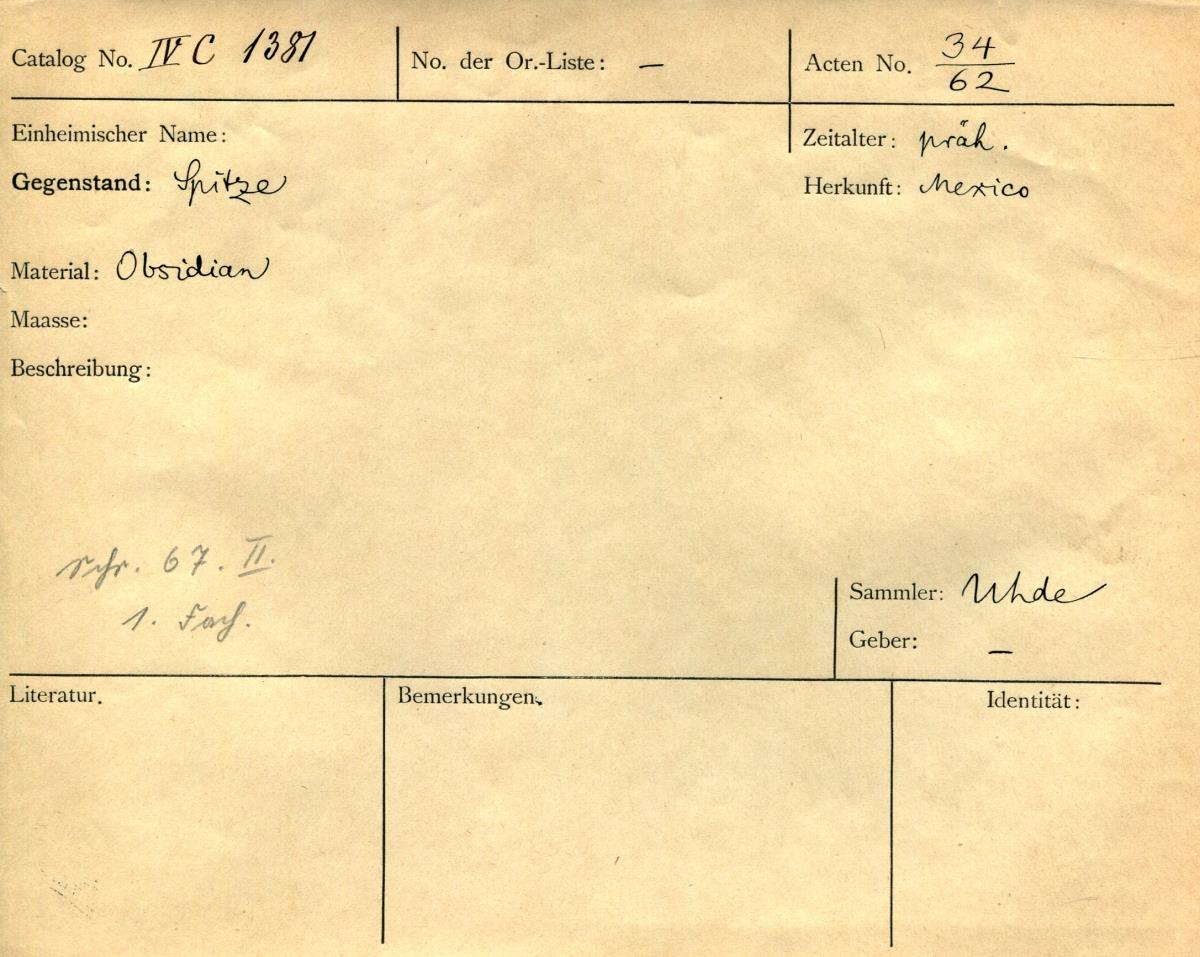 Catalog No. IV C 1381 No. der Or.-Liste: — Acten No. 34/62
Einheimischer Name:
Zeitalter: präh.
Gegenstand: Spitze
Herkunft: Mexico
Material: Obsidian
Maasse:
Beschreibung:
Schr. 67. II.
1. Fach.
Sammler: Uhde
Geber: —
Literatur. Bemerkungen. Identität: